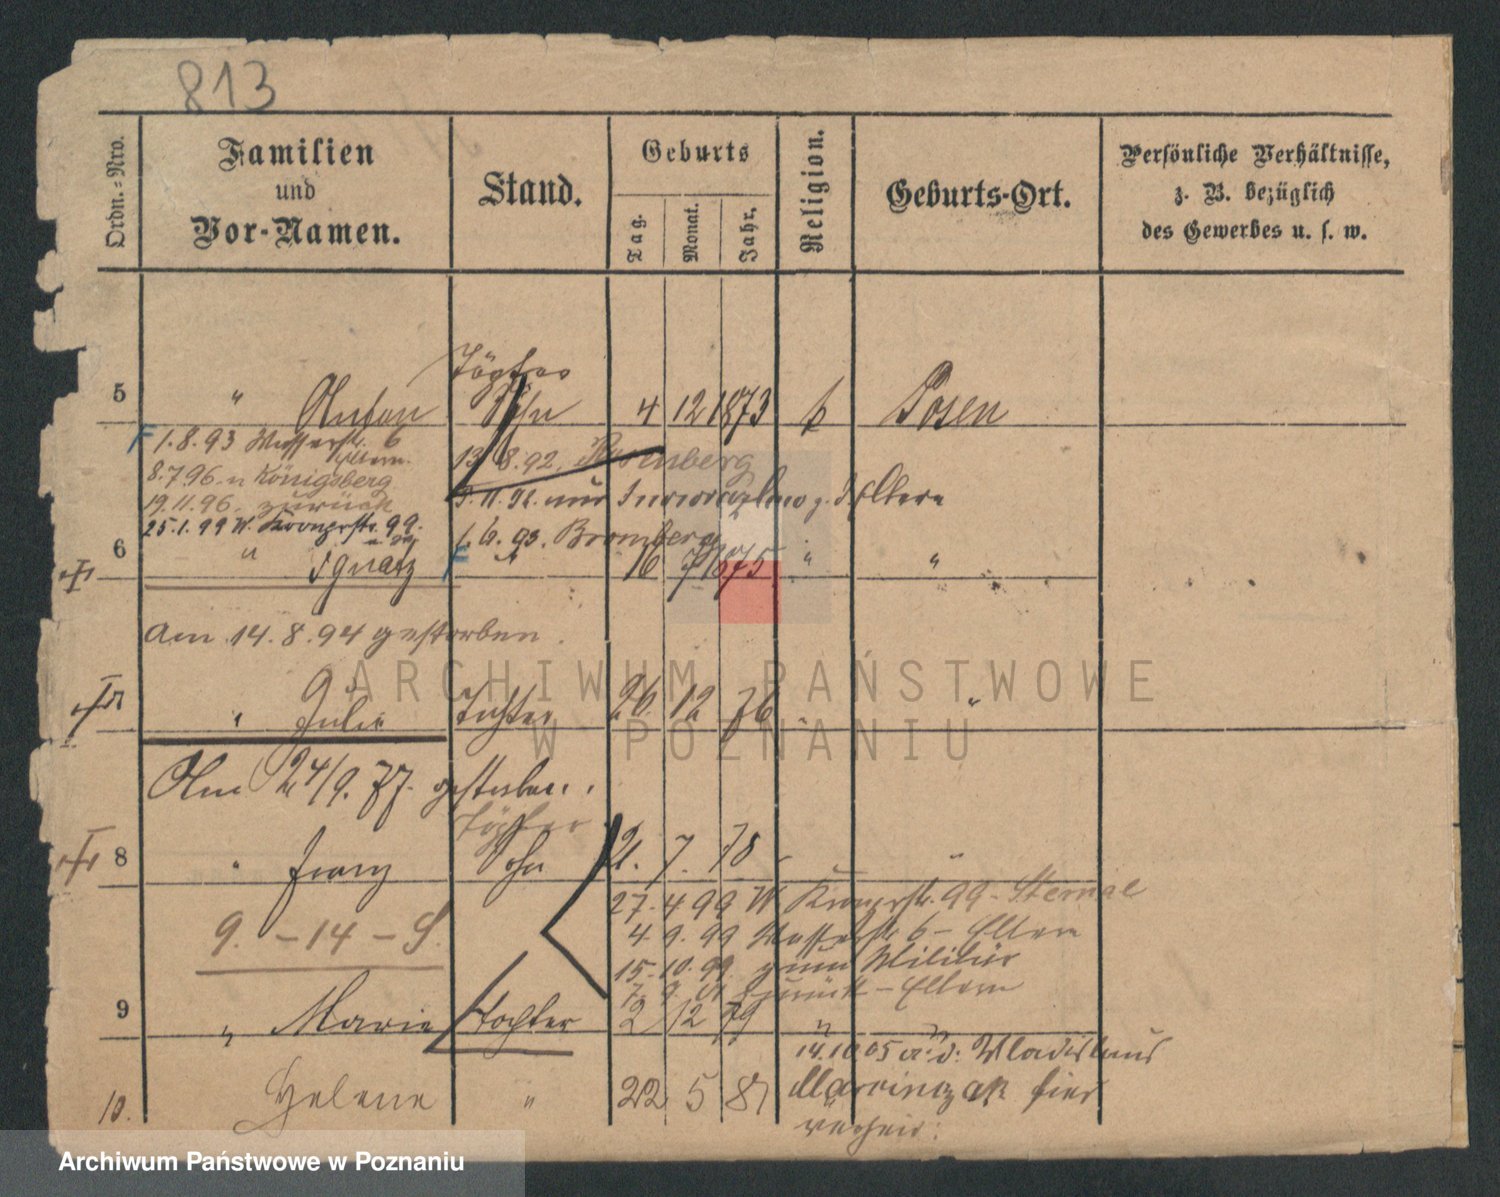 813
Ordn.-Nro.
Familien
und
Vor-Namen.
Stand.
Geburts
Tag.
Monat.
Jahr.
Religion.
Geburts-Ort.
Persönliche Verhältnisse,
z. B. bezüglich
des Gewerbes u. s. w.
Töpfer
5 " Anton Sohn 4 12 1873 k Posen
1.8.93 Wasserstr. 6
Eltern.
8.7.96. n Königsberg
19.11.96. zurück
25.1.99 W. Kronprstr. 99.
13/8.92. Rosenberg
9.11.92. aus Inowrazlaw z. d Eltern
1.6.93. Bromberg
6 " Ignatz " 16 7 1875 " "
Am 14.8.94 gestorben.
7 " Julie Tochter 26. 12 76 "
Am 24/9.77. gestorben.
Töpfer
8 " Franz Sohn 21. 7. 78 "
27.4 99 W Kronprstr. 99 - Sternal
4.9.99 Wasserstr 6 - Eltern
15.10.99. zum Militär
7.9.01 zurück - Eltern
9. - 14 - S.
9 " Marie Tochter 2 12 79 "
14.10 05 a. d. Wladislaus
Marcinczak hier
verheir:
10. Helene " 22 5 81
ARCHIWUM PAŃSTWOWE
W POZNANIU
Archiwum Państwowe w Poznaniu